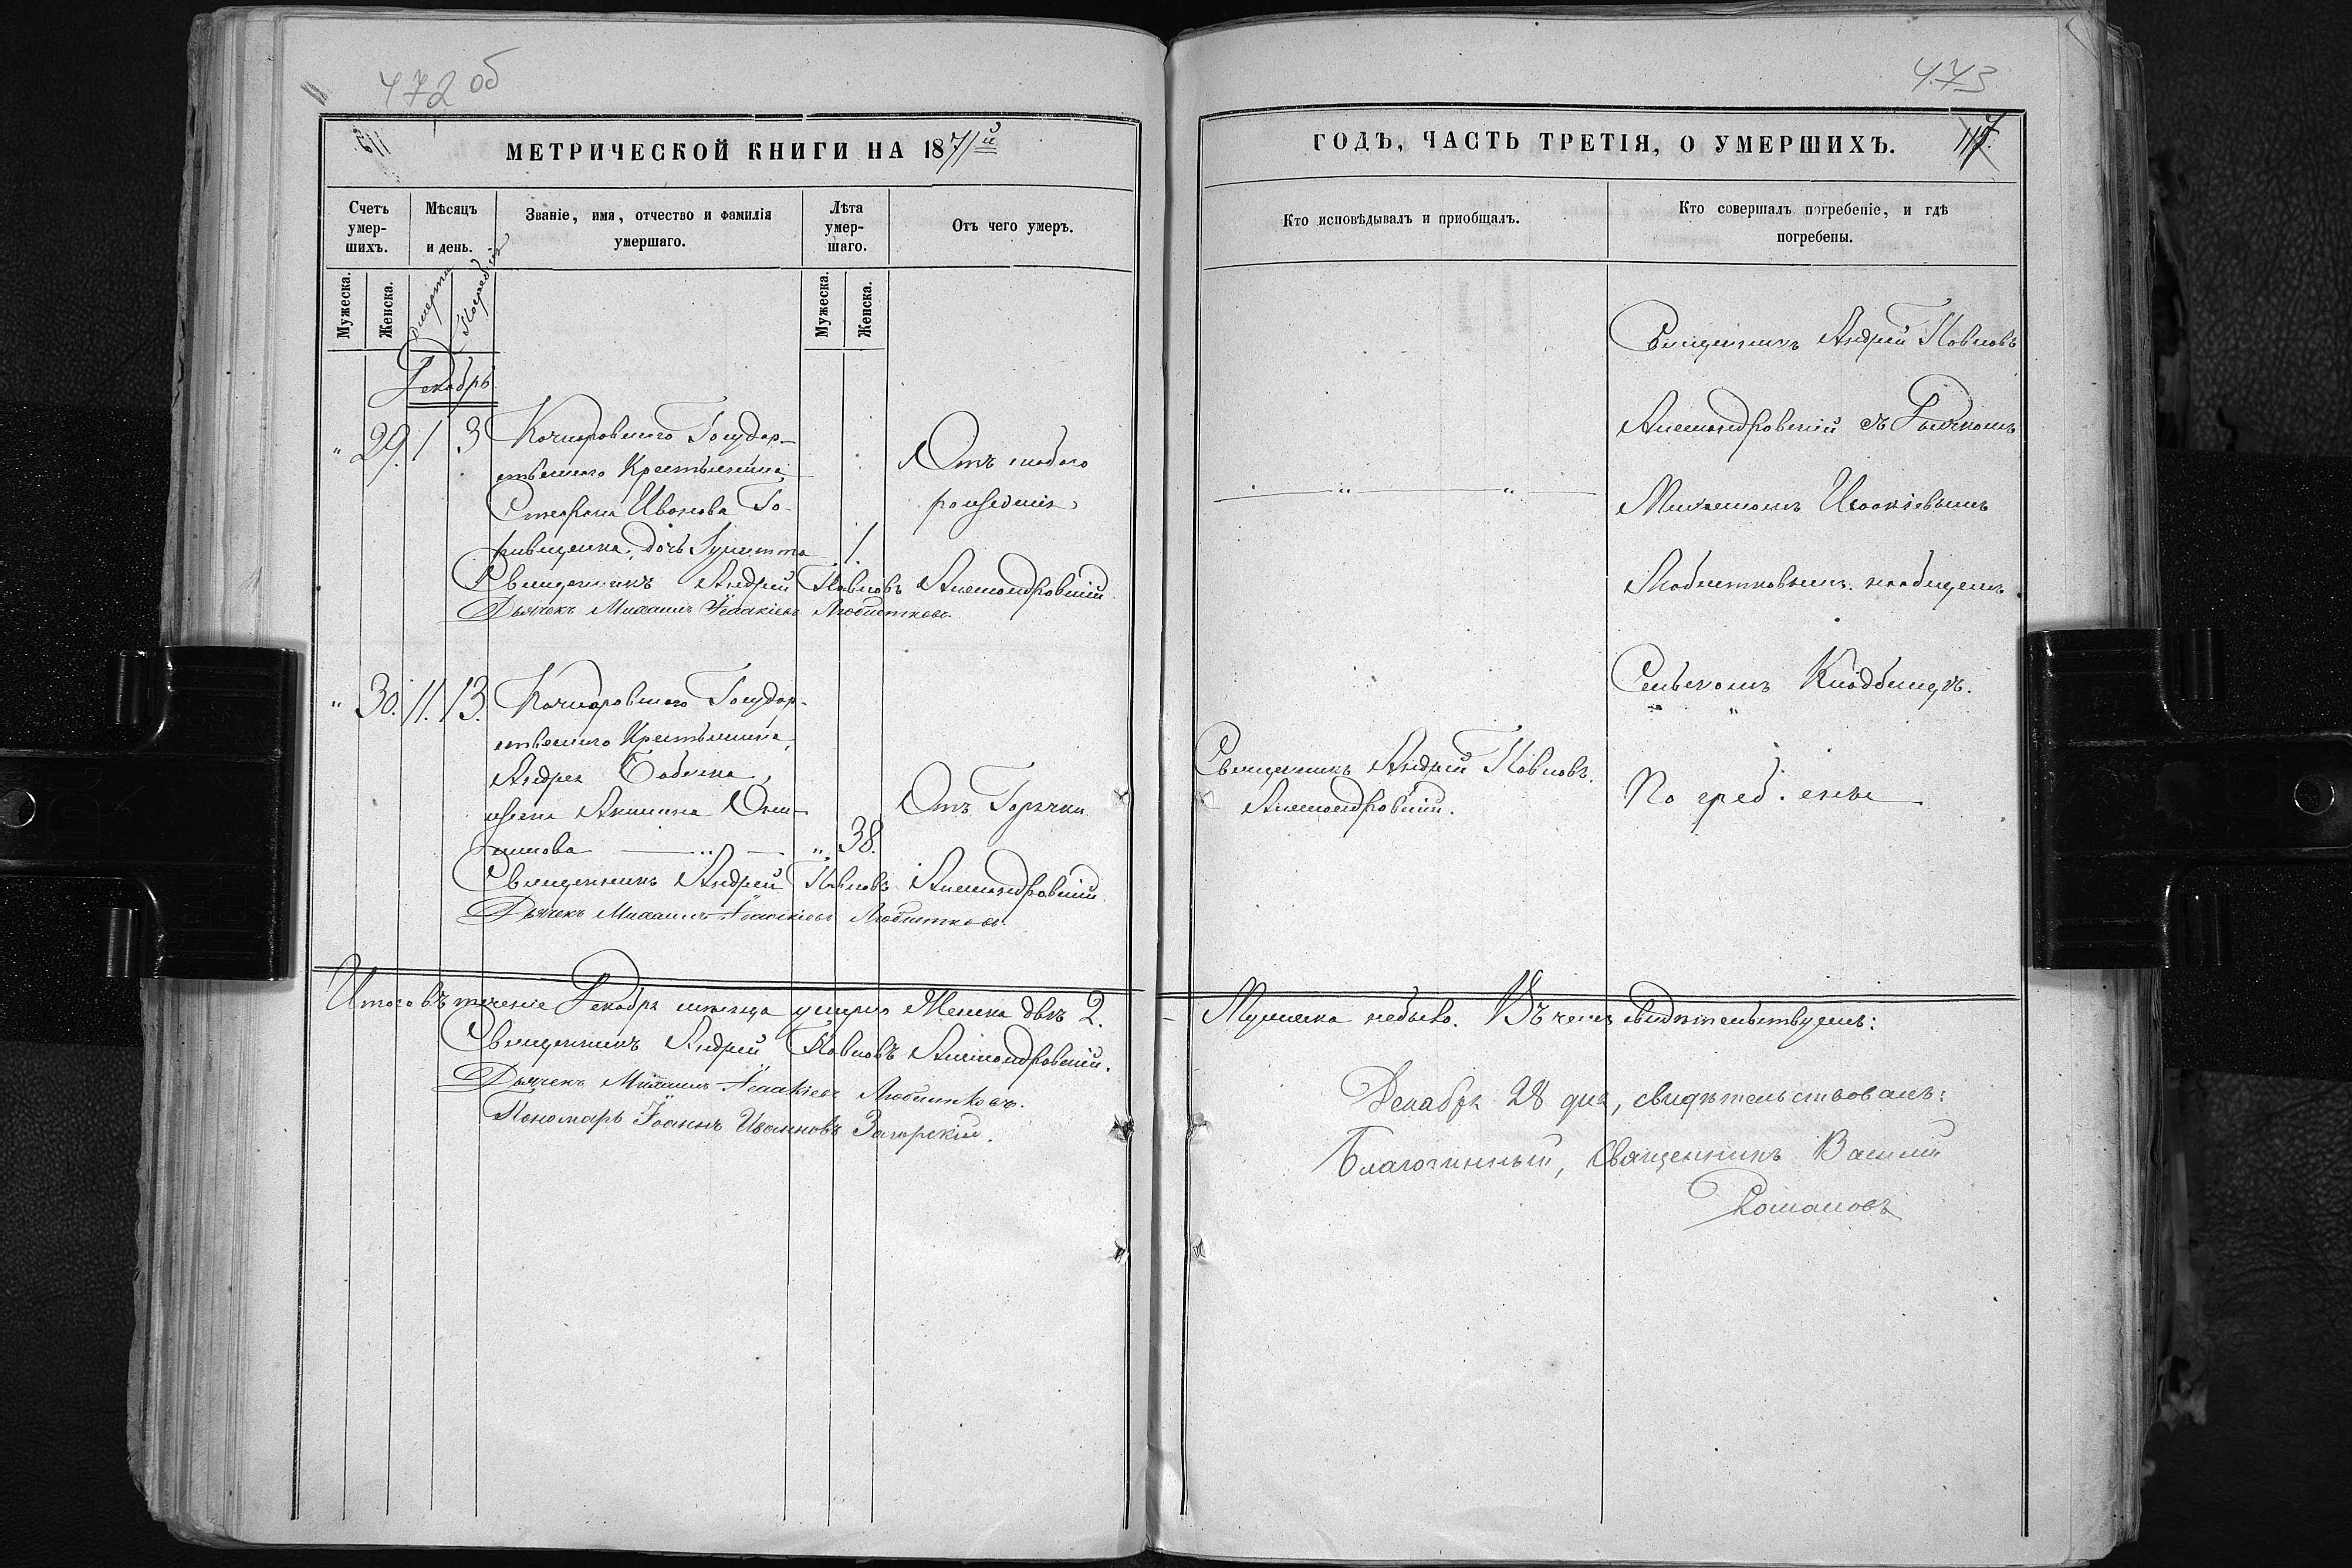 472 об
МЕТРИЧЕСКОЙ КНИГИ НА 1871й
Счетъ умер-шихъ.
Мѣсяцъ и день.
Званіе, имя, отчество и фамилія умершаго.
Лѣта умер-шаго.
Отъ чего умеръ.
Мужеска.
Женска.
Смерти
Погребенія
Мужеска.
Женска.
Декабрь
" 29. 1 3 Государ-
ственнаго Крестьянина
Стефана Иванова
дочь 1.
Отъ слабаго
рожденія
Священникъ Андрей Павловъ Александровскій
Дьячекъ Михаилъ Ісаакіевъ
" 30. 11. 13. Государ-
ственнаго Крестьянина
Андрея
жена Акилина
„ 38.
Отъ Горячки
Священникъ Андрей Павловъ Александровскій
Дьячекъ Михаилъ Ісаакіевъ
Итого въ теченіе Декабря месяца умерло Женска двѣ 2.
Священникъ Андрей Павловъ Александровскій.
Дьячекъ Михаилъ Ісаакіевъ
Пономарь Іоаннъ Ивановъ Загорскій.
473
ГОДЪ, ЧАСТЬ ТРЕТІЯ, О УМЕРШИХЪ.
117.
Кто исповѣдывалъ и приобщалъ.
Кто совершалъ погребеніе, и гдѣ погребены.
Священникъ Андрей Павловъ
Александровскій съ Дьячкомъ
Михаиломъ Исаакіевымъ
на общемъ
Сельскомъ Кладбищѣ.
Священникъ Андрей Павловъ.
Александровскій.
Мужеска небыло. Въ чемъ свидѣтельствуемъ:
Декабря 28 дня, свидѣтельствовалъ:
Благочинный, Священникъ Василій
Романовъ